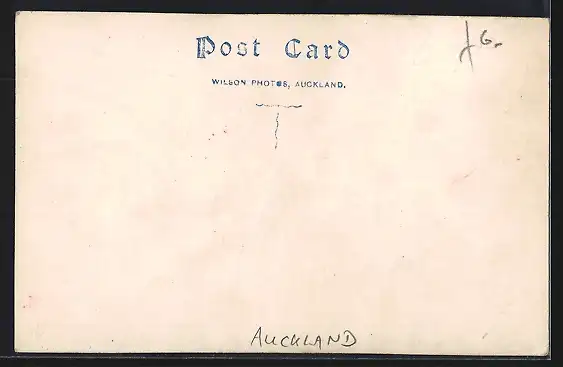 Post Card
WILSON PHOTOS, AUCKLAND.
£6.
AUCKLAND